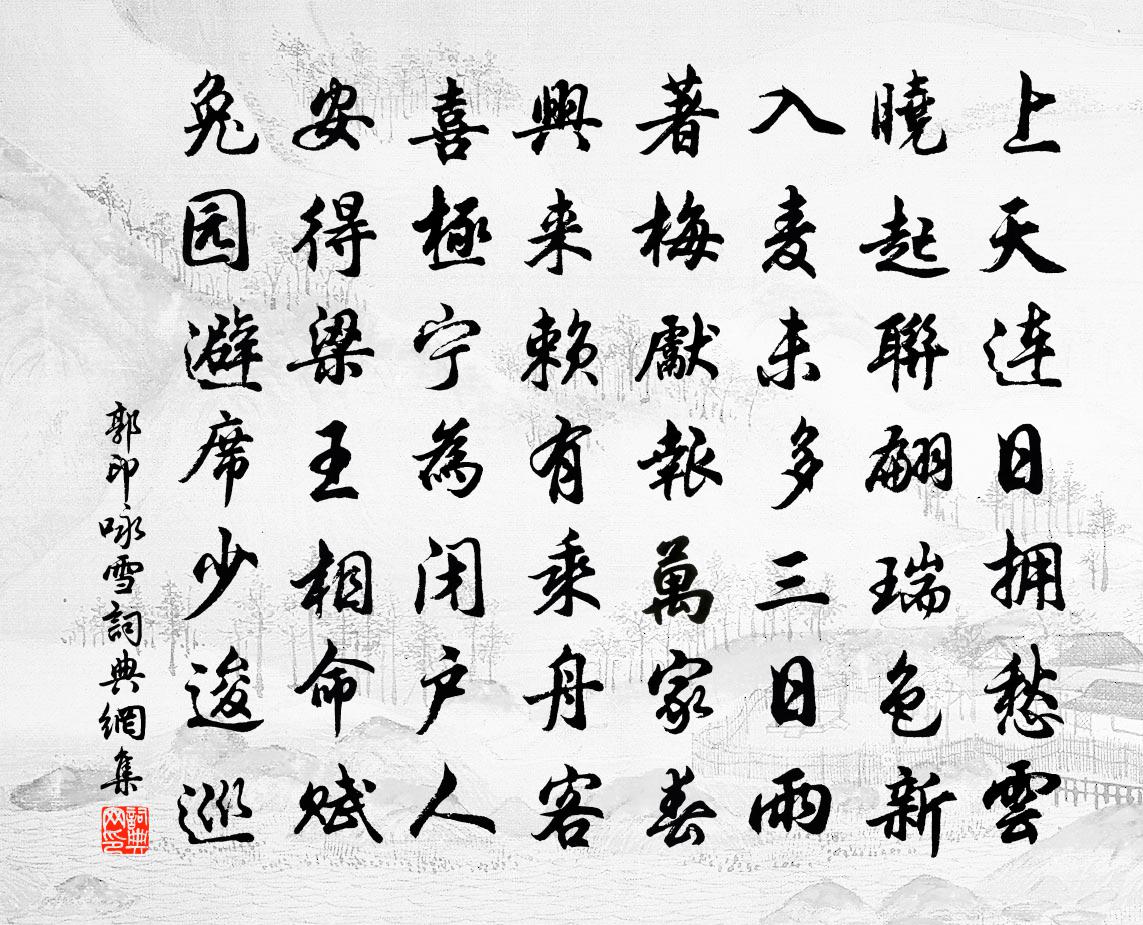 上天连日拥愁雲
曉起聯翩瑞色新
入麦未多三日雨
著梅獻報萬家春
興来赖有乘舟客
喜極宁為闭户人
安得梁王相命赋
兔园避席少逡巡
郭印咏雪詞典網集
詞典网印